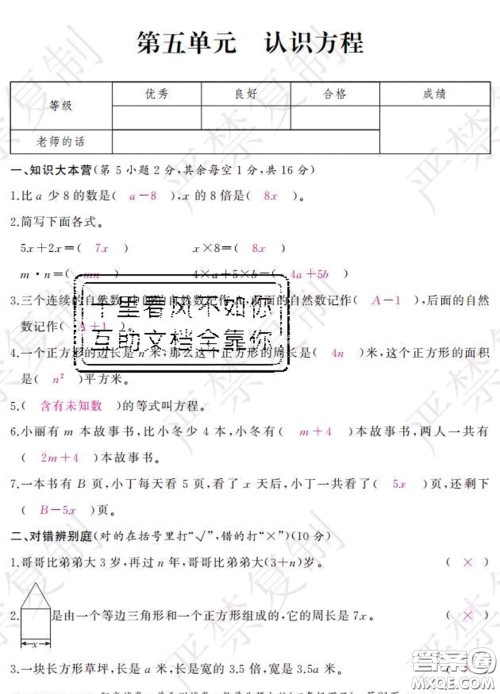 第五单元 认识方程
等级 优秀 良好 合格 成绩
老师的话
一、知识大本营(第5小题2分,其余每空1分,共16分)
1.比a少8的数是( a-8 ),x的8倍是( 8x )。
2.简写下面各式。
5x+2x=( 7x ) x×8=( 8x )
m·n=( mn ) 4×a+5×b=( 4a+5b )
3.三个连续的自然数,中间的自然数记作A,前面的自然数记作( A-1 ),后面的自然
数记作( A+1 )。
4.一个正方形的边长是n米,那么这个正方形的周长是( 4n )米,这个正方形的面积
是( n² )平方米。
5.( 含有未知数 )的等式叫方程。
6.小丽有m本故事书,比小冬少4本,小冬有( m+4 )本故事书,两人一共有
( 2m+4 )本故事书。
7.一本书有B页,小丁每天看5页,看了x天后,小丁一共看了( 5x )页,还剩下
( B-5x )页。
二、对错辨别庭(对的在括号里打“√”,错的打“×”)(10分)
1.哥哥比弟弟大3岁,再过n年,哥哥比弟弟大(3+n)岁。 ( × )
2. 是由一个等边三角形和一个正方形组成的,它的周长是7x。 ( × )
x
3.一块长方形草坪,长是a米,长是宽的3.5倍,宽是3.5a米。
千里春风不如你
互助文档全靠你
严禁复制
答案圈
MXQE.COM